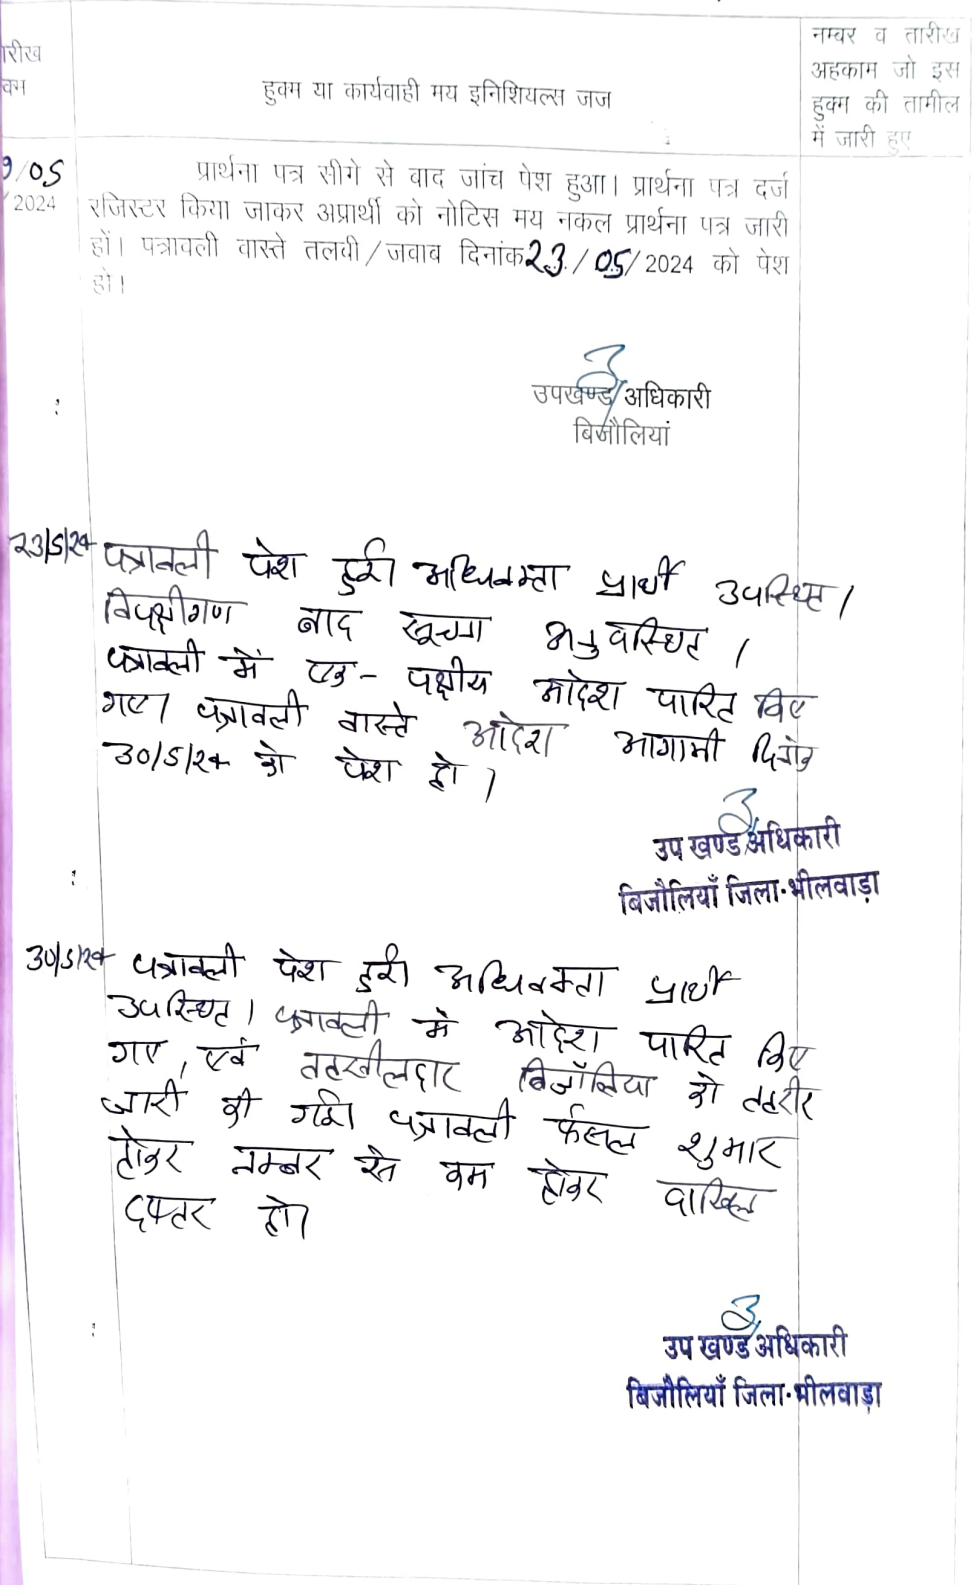 रीख
क्म
हुक्म या कार्यवाही मय इनिशियल्स जज
नम्बर व तारीख
अहकाम जो इस
हुक्म की तामील
में जारी हुए
9/05
2024
प्रार्थना पत्र सीगे से बाद जांच पेश हुआ। प्रार्थना पत्र दर्ज
रजिस्टर किया जाकर अप्रार्थी को नोटिस मय नकल प्रार्थना पत्र जारी
हों। पत्रावली वास्ते तलवी/जवाब दिनांक 23/05/2024 को पेश
हो।
उपखण्ड अधिकारी
बिजौलियां
23/5/24 पत्रावली पेश हुई। अधिवक्ता प्रार्थी उपस्थित।
विपक्षीगण बाद सूचना अनुपस्थित।
पत्रावली में एक-पक्षीय आदेश पारित किए
गए। पत्रावली वास्ते आदेश आगामी दिनांक
30/5/24 को पेश हो।
उप खण्ड अधिकारी
बिजौलियाँ जिला-भीलवाड़ा
30/5/24 पत्रावली पेश हुई। अधिवक्ता प्रार्थी
उपस्थित। पत्रावली में आदेश पारित किए
गए, एवं तहसीलदार बिजौलिया को तहरीर
जारी की गई। पत्रावली फैसल शुमार
होकर नम्बर से कम होकर दाखिल
दफ्तर हो।
उप खण्ड अधिकारी
बिजौलियाँ जिला-भीलवाड़ा